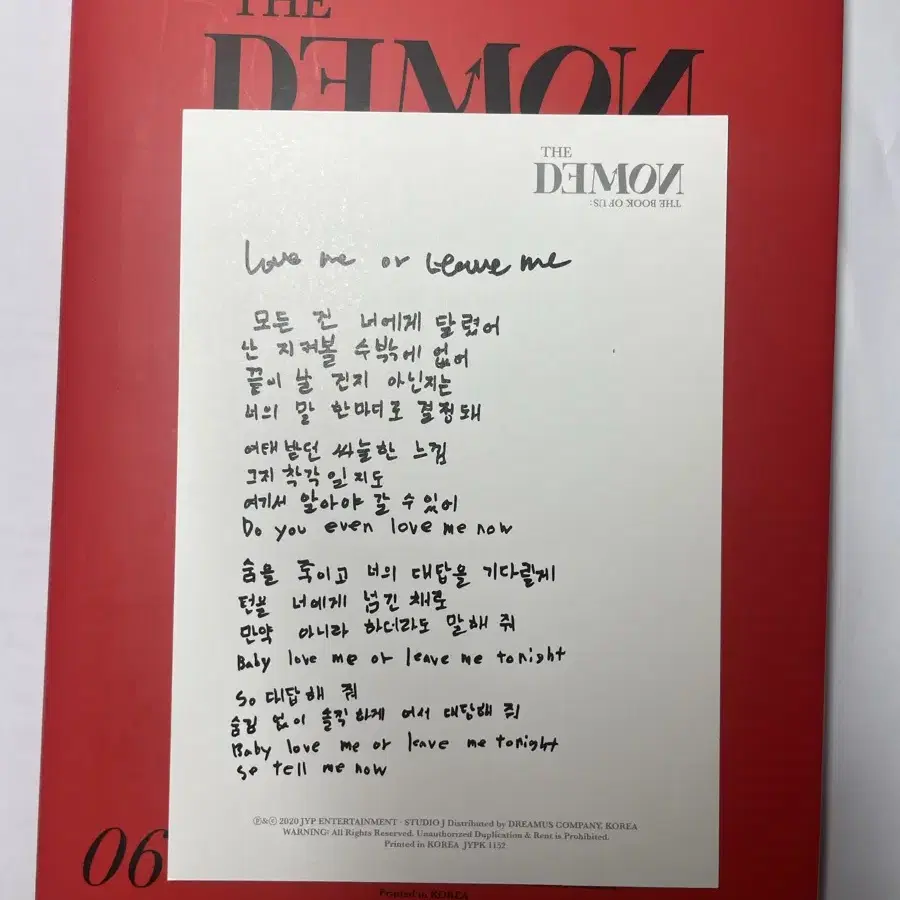 THE
DEMON
THE
DEMON
THE BOOK OF US:
Love me or Leave me
모든 건 너에게 달렸어
난 지켜볼 수밖에 없어
끝이 날 건지 아닌지는
너의 말 한마디로 결정돼
여태 받던 싸늘한 느낌
그저 착각 일지도
여기서 알아야 갈 수 있어
Do you even love me now
숨을 죽이고 너의 대답을 기다릴게
턴을 너에게 넘긴 채로
만약 아니라 하더라도 말해 줘
Baby love me or leave me tonight
So 대답해 줘
숨김 없이 솔직하게 어서 대답해 줘
Baby love me or leave me tonight
So tell me now
Ⓟ&ⓒ 2020 JYP ENTERTAINMENT · STUDIO J Distributed by DREAMUS COMPANY, KOREA
WARNING: All Rights Reserved. Unauthorized Duplication & Rent is Prohibited.
Printed in KOREA JYPK 1152
06
Printed in KOREA